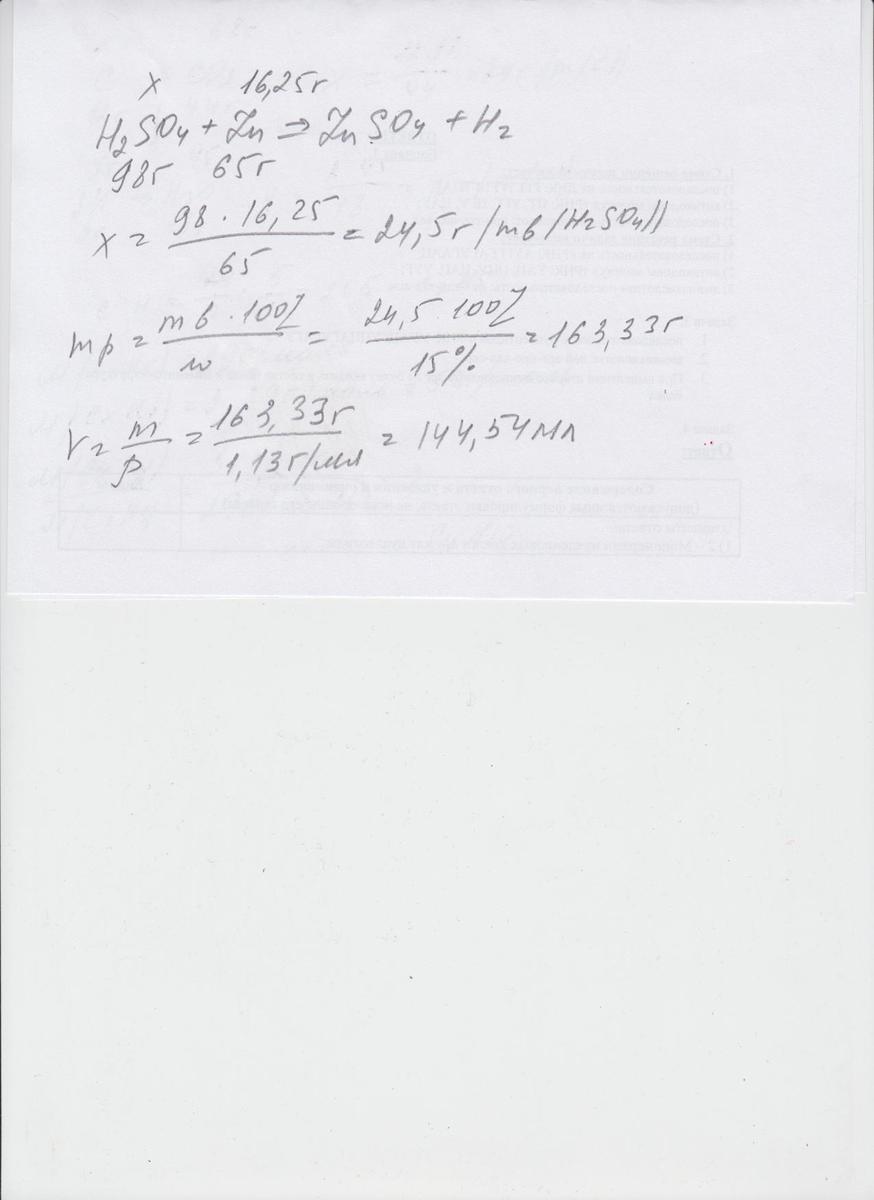 x 16,25г
H2SO4 + Zn => ZnSO4 + H2
98г 65г
x = 98 · 16,25 / 65 = 24,5г /mв/H2SO4//
mр = mв · 100% / w = 24,5 · 100% / 15% = 163,33г
V = m / ρ = 163,33г / 1,13г/мл = 144,54мл